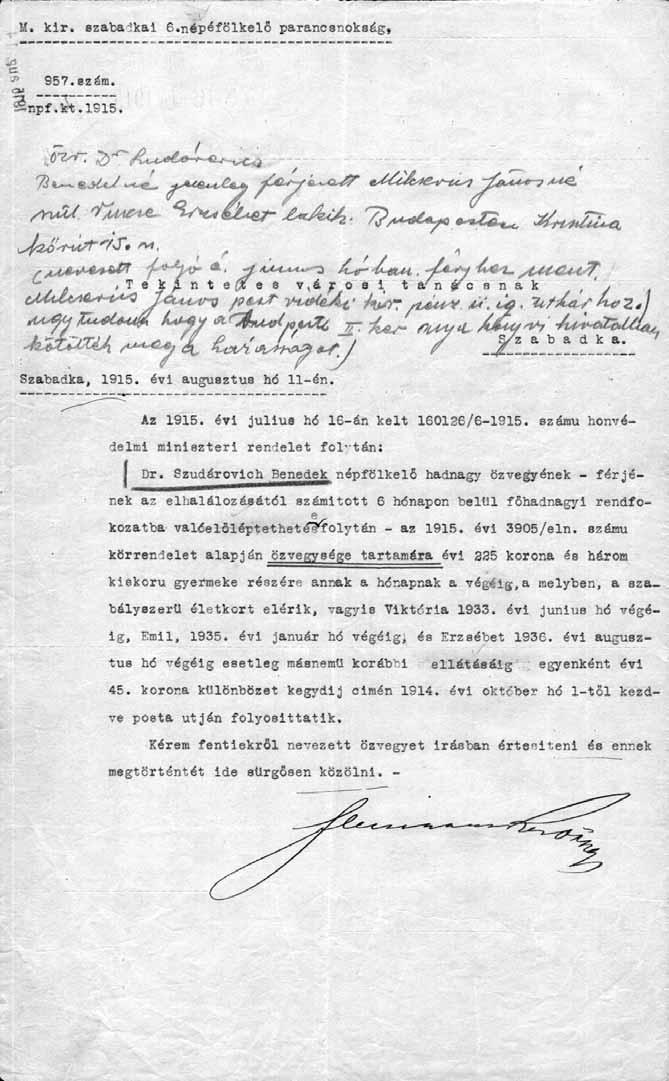 M. kir. szabadkai 6.népfölkelő parancsnokság,
957.szám.
npf.kt.1915.
özv. Dr
Benedekné jelenleg férjezett Miksevits Jánosné
szül. Vincze Erzsébet lakik. Budapesten Krisztina
körút 15. sz.
(nevezett folyó é. junius hóban férjhez ment
Tekintetes városi tanácsnak
János pest vidéki ker. pénz ü. ig.
úgy tudom hogy a budpesti II. ker anya könyvi hivatalban
Szabadka.
kötötték meg a házasságot.)
Szabadka, 1915. évi augusztus hó 11-én.
Az 1915. évi julius hó 16-án kelt 160126/6-1915. számu honvé-
delmi miniszteri rendelet folytán:
Dr. Szudárovich Benedek népfölkelő hadnagy özvegyének - férjé-
nek az elhalálozásától számitott 6 hónapon belül főhadnagyi rendfo-
kozatba valóelőléptethetése folytán - az 1915. évi 3905/eln. számu
körrendelet alapján özvegysége tartamára évi 225 korona és három
kiskoru gyermeke részére annak a hónapnak a végéig,a melyben, a sza-
bályszerü életkort elérik, vagyis Viktória 1933. évi junius hó végé-
ig, Emil, 1935. évi január hó végéig, és Erzsébet 1936. évi augusz-
tus hó végéig esetleg másnemü korábbi ellátásáig egyenként évi
45. korona különbözet kegydij cimén 1914. évi október hó 1-től kezd-
ve posta utján folyosittatik.
Kérem fentiekről nevezett özvegyet irásban értesiteni és ennek
megtörténtét ide sürgősen közölni. -